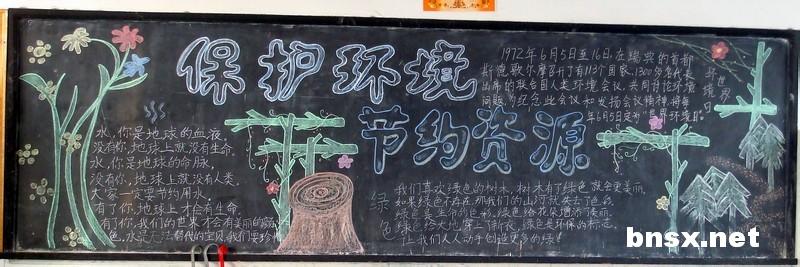 保护环境
节约资源
1972年6月5日至16日,在瑞典的首都
斯德歌尔摩召开了有113个国家,1300多名代表
出席的联合国人类环境会议,共同讨论环境
问题,为纪念此会议和发扬会议精神,将每
年6月5日定为"世界环境日"。
世界
环境
日
水,你是地球的血液,
没有你,地球上就没有生命。
水,你是地球的命脉,
没有你,地球上就没有人类。
大家一定要节约用水,
有了你,地球上才会有生命。
有了你,我们的世界才会有美丽的
色,水是无法替代的宝贝,我们要珍惜
绿
色
我们喜欢绿色的树木,树木有了绿色,就会更美丽,
如果绿色不存在,那我们的山河就失去了色彩,
绿色是生命的色彩,绿色给花朵增添了美丽,
绿色给大地穿上了新衣,绿色是环保的标志,
让我们人人动手创造更多的绿!
bnsx.net